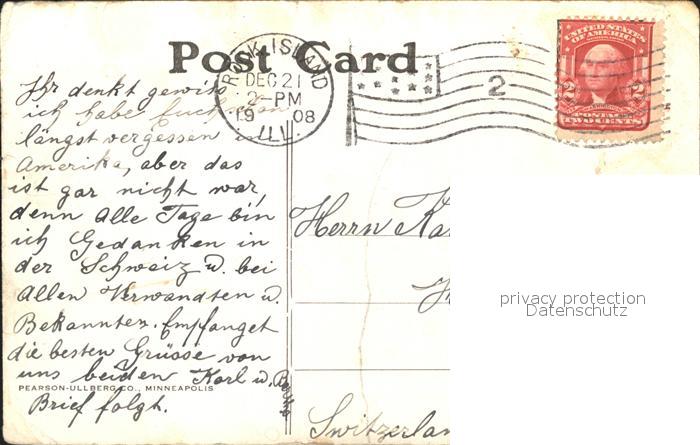 Post Card
ROCK ISLAND
DEC 21
2-PM
1908
ILL.
2
UNITED STATES
OF AMERICA
2 2
POSTAGE
TWO CENTS
Ihr denkt gewiss
ich habe euch schon
längst vergessen
Amerika, aber das
ist gar nicht war,
denn alle Tage bin
ich Gedanken in
der Schweiz u. bei
allen Verwandten u.
Bekannten, Empfanget
die besten Grüsse von
uns beiden Karl u.
PEARSON-ULLBERG CO., MINNEAPOLIS
Brief folgt.
Herrn
Switzerlan
privacy protection
Datenschutz